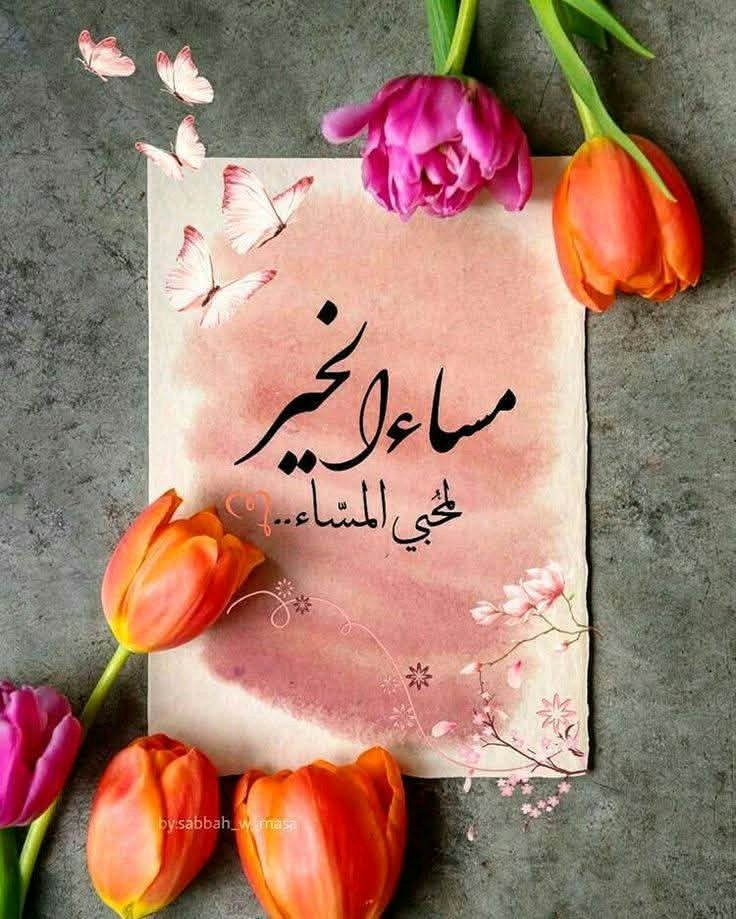 مساء الخير
لمُحبي المسّاء..
by:sabbah_w_masa